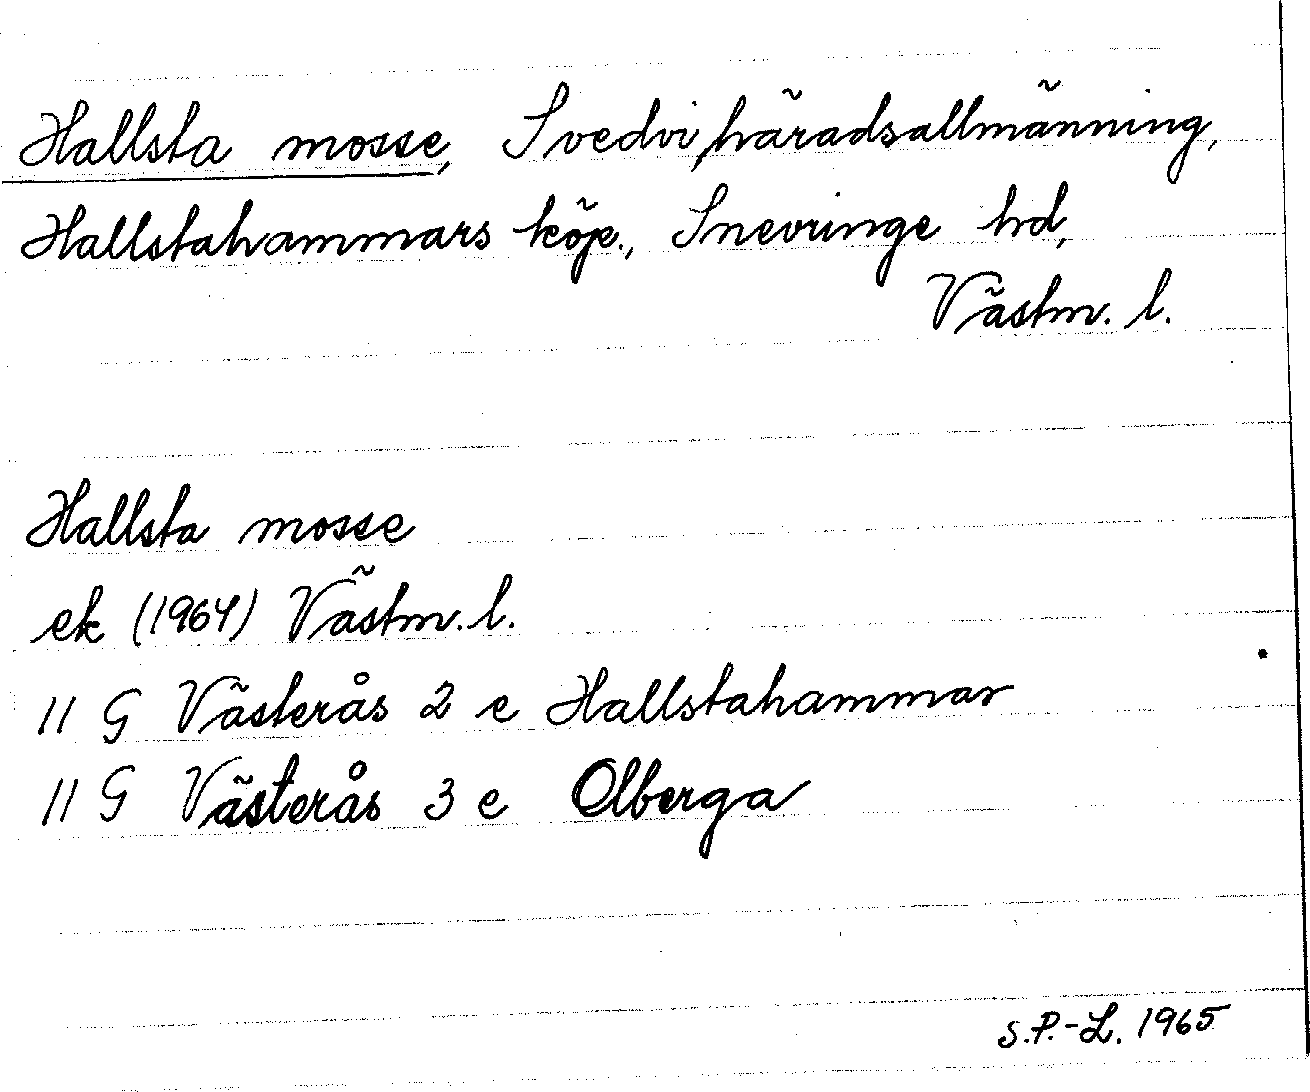 Hallsta mosse, Svedvi häradsallmänning,
Hallstahammars köp., Snevringe hd,
Västm. l.
Hallsta mosse
ek (1964) Västm. l.
11 G Västerås 2 e Hallstahammar
11 G Västerås 3 e Olberga
S.P.-L. 1965